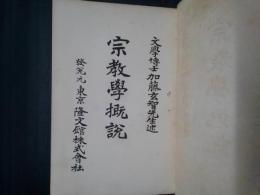 文學博士加藤玄智先生述
宗教學概説
發兌元東京隆文館株式會社